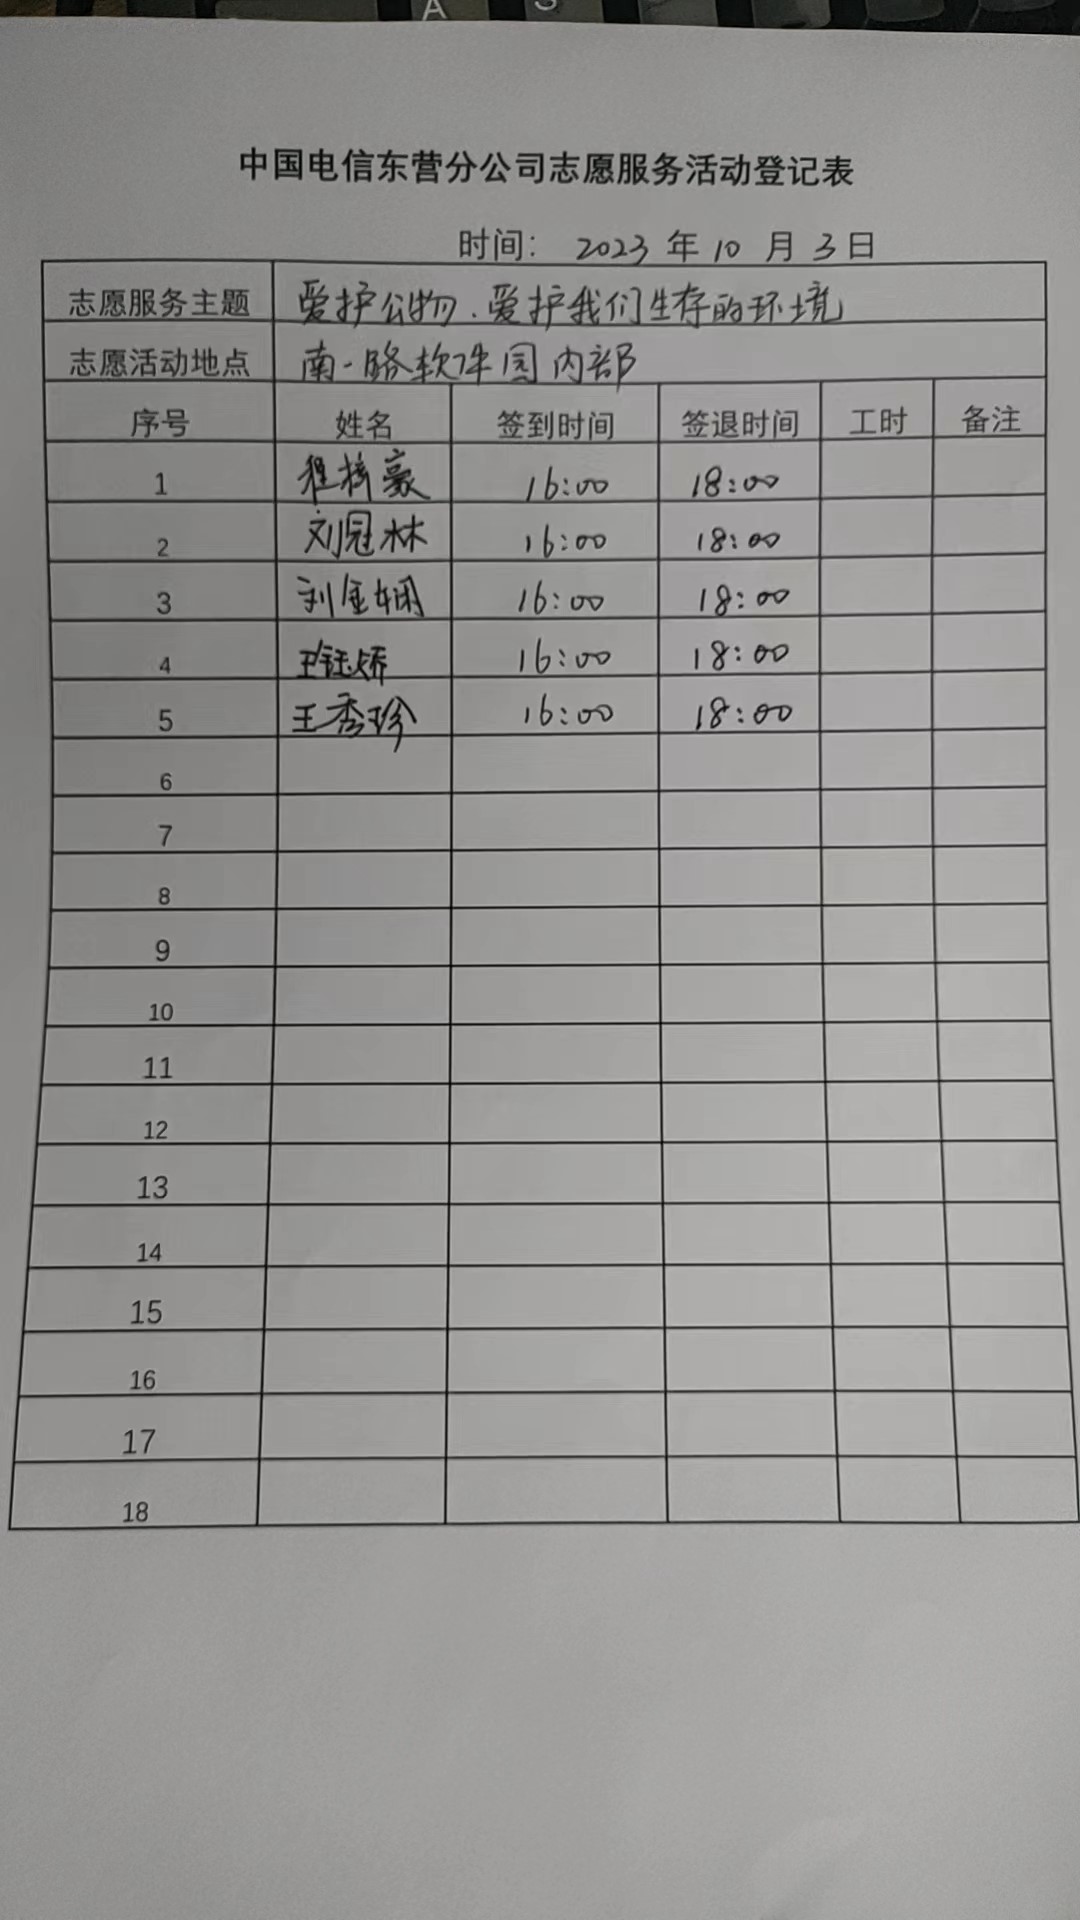 A S
中国电信东营分公司志愿服务活动登记表
时间： 2023 年 10 月 3 日
志愿服务主题 爱护公物.爱护我们生存的环境
志愿活动地点 南一路软件园内部
序号 姓名 签到时间 签退时间 工时 备注
1 程梓豪 16:00 18:00
2 刘冠林 16:00 18:00
3 刘金娴 16:00 18:00
4 钰娇 16:00 18:00
5 王秀珍 16:00 18:00
6
7
8
9
10
11
12
13
14
15
16
17
18